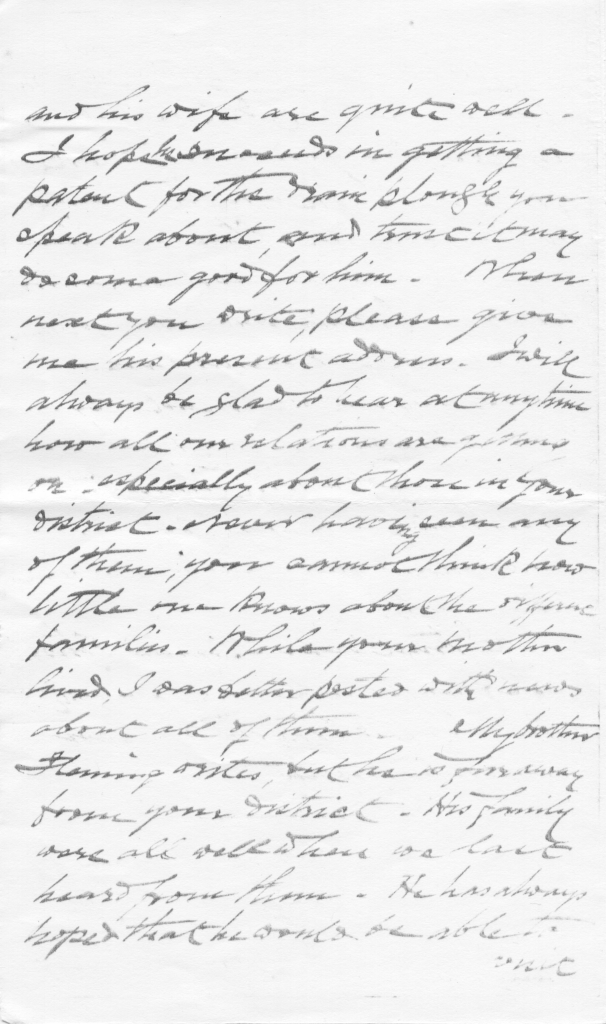 and his wife are quite well -
I hope he succeeds in getting a
patent for the drain plough you
speak about, and trust it may
do some good for him - When
next you write, please give
me his present address. I will
always be glad to hear at any time
how all our relations are getting
on - especially about those in your
district - Never having seen any
of them, you cannot think how
little one knows about the different
families - While your mother
lived, I was better posted with news
about all of them - My brother
Fleming writes, but he is far away
from your district - His family
were all well when we last
heard from them - He has always
hoped that he would be able to
visit